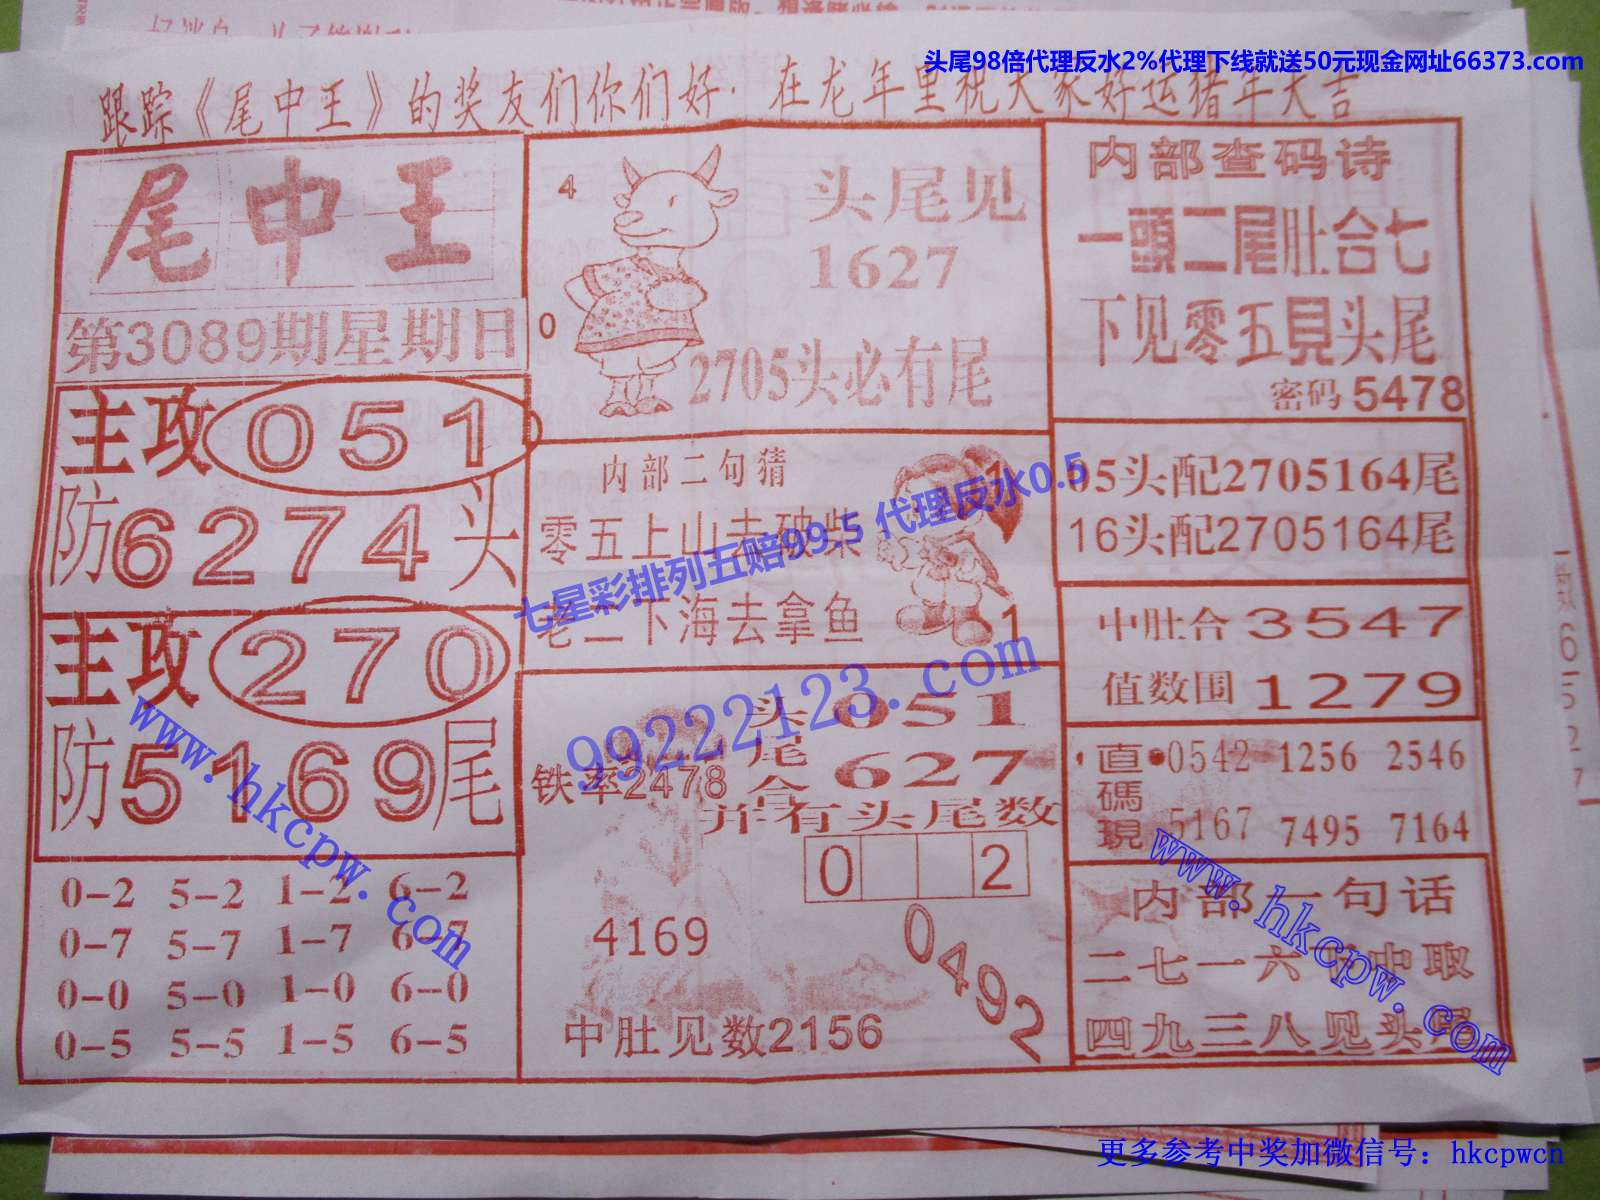 头尾98倍代理反水2%代理下线就送50元现金网址66373.com
跟踪《尾中王》的奖友们你们好·在龙年里祝大家好运猪年大吉
尾中王
第3089期星期日
主攻051
防6274头
主攻270
防5169尾
0-2 5-2 1-2 6-2
0-7 5-7 1-7 6-7
0-0 5-0 1-0 6-0
0-5 5-5 1-5 6-5
4
0
头尾见
1627
2705头必有尾
内部二句猜
零五上山去破柴
老二下海去拿鱼
1
1
头尾合
051
627
铁率2478
并有头尾数
0 2
4169
0492
中肚见数2156
内部查码诗
一頭二尾肚合七
下见零五見头尾
密码5478
05头配2705164尾
16头配2705164尾
中肚合3547
值数围1279
直碼現
0542 1256 2546
5167 7495 7164
内部一句话
二七一六中取
四九三八见头尾
七星彩排列五赔99.5 代理反水0.5
99222123.com
www.hkcpw.com
www.hkcpw.com
更多参考中奖加微信号：hkcpwcn